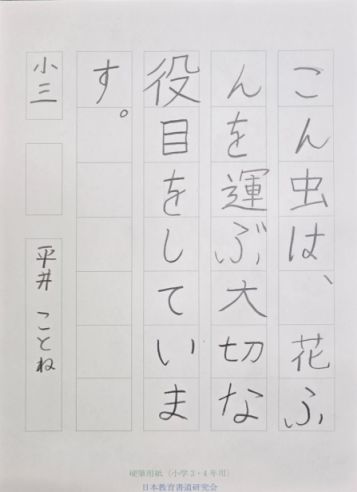 こん虫は、花ふ
んを運ぶ大切な
役目をしていま
す。
小三
平井ことね
硬筆用紙(小学3・4年用)
日本教育書道研究会